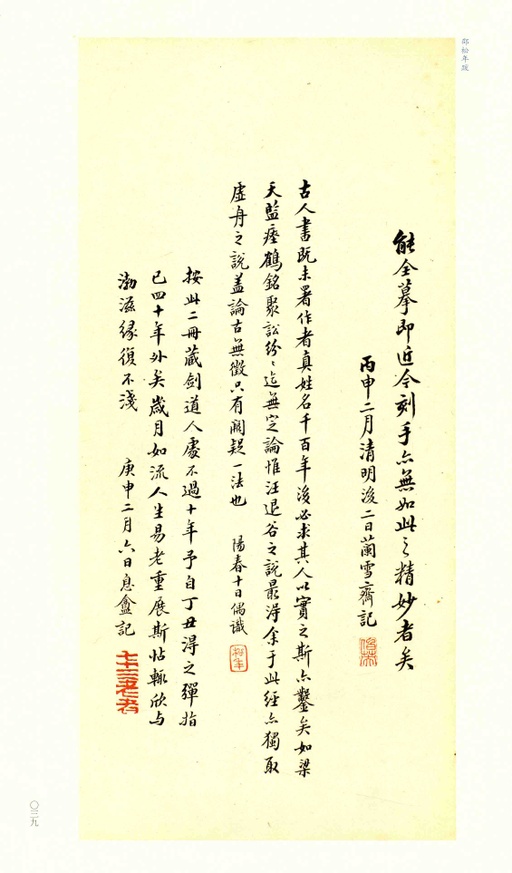 邵松年跋
能全摹即近令刻手亦無如此之精妙者矣
丙申二月清明後二日蘭雪齋記
古人書既未署作者真姓名千百年後必求其人以實之斯亦鑿矣如梁
天監瘞鶴銘聚訟紛〻迄無定論惟汪退谷之說最淂余于此經亦獨取
虛舟之說盖論古無徵只有闕疑一法也 陽春十日偶識
按此二冊藏劍道人處不過十年予自丁丑淂之彈指
已四十年外矣歲月如流人生易老重展斯帖輒欣與
渤海緣復不淺 庚申二月六日息盦記
七十三老者
〇三九